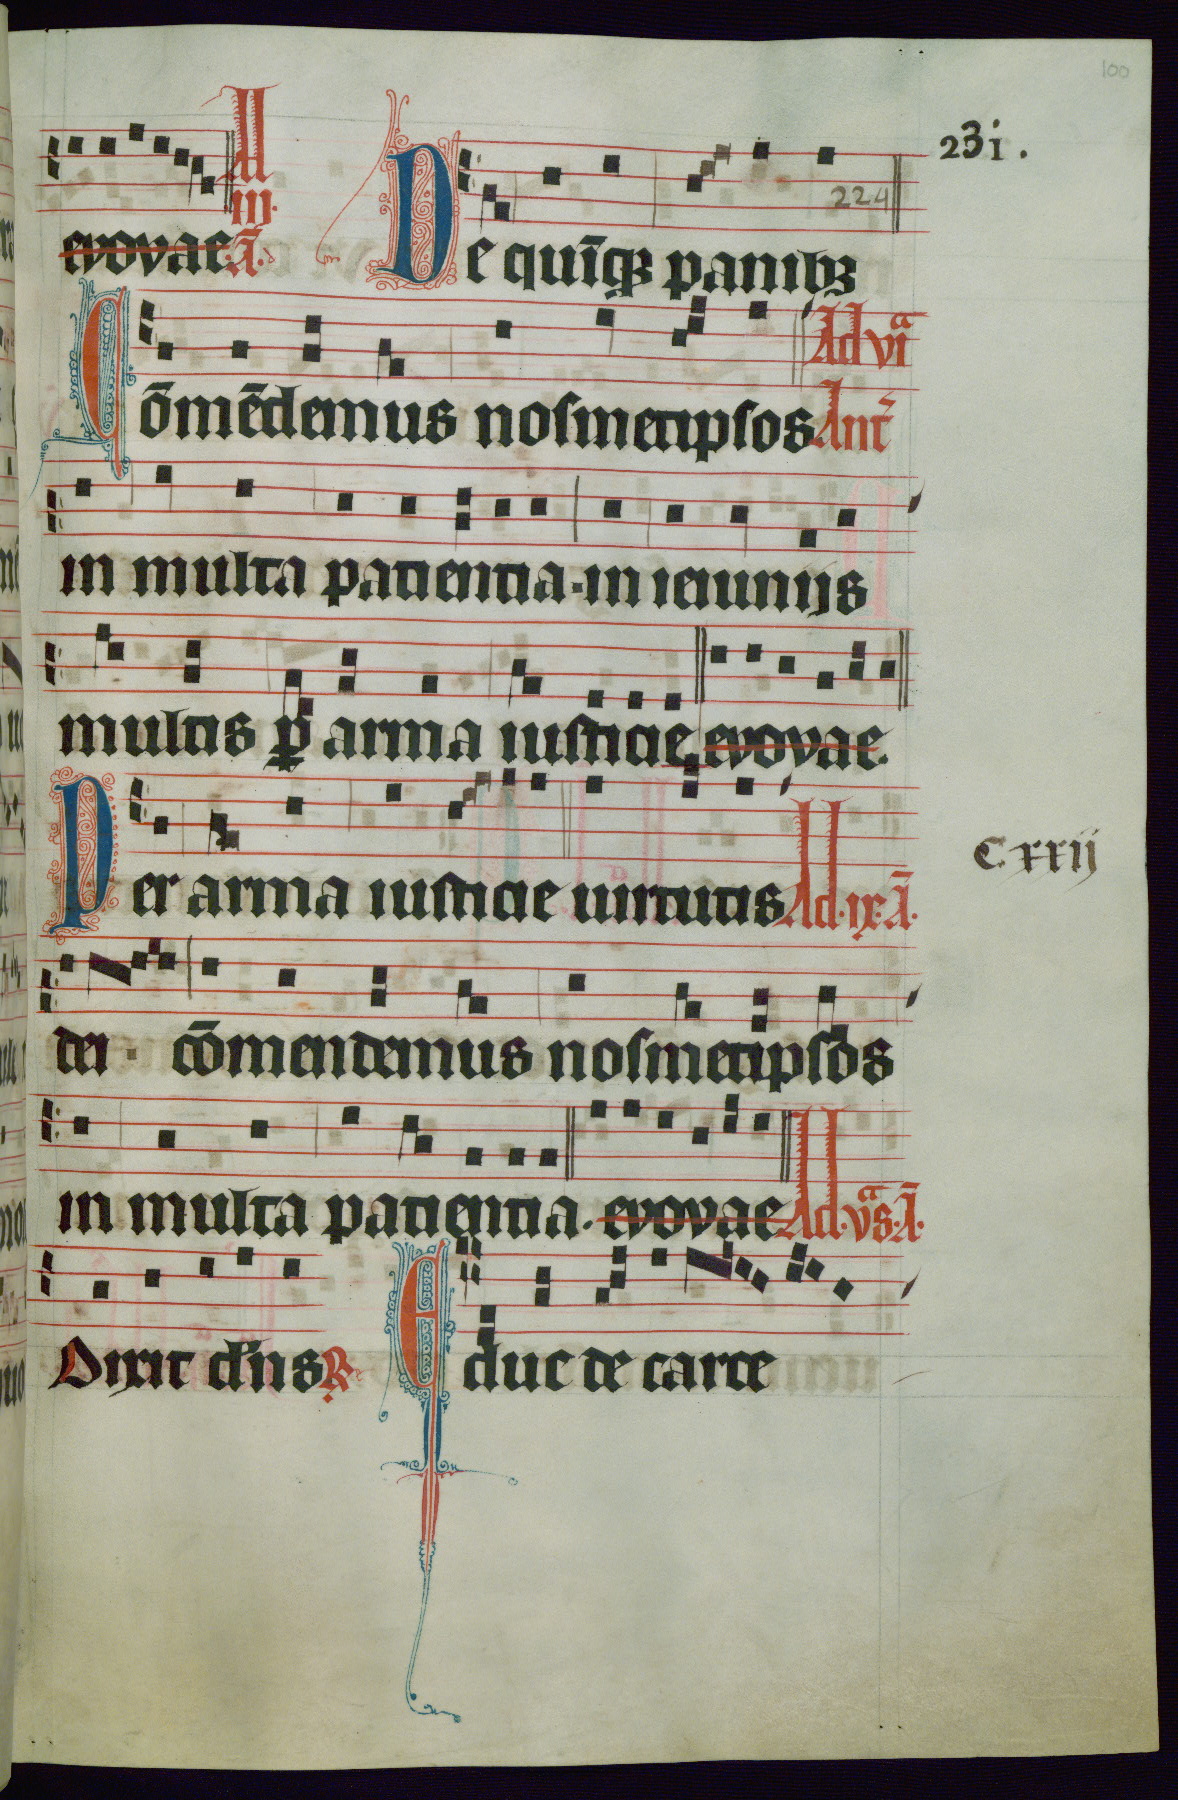 100
23i.
224
Ad
iij.
evovae. Ā. De quīqꝫ panibꝫ
Ad viᵃ
Cōmēdemus nosmetipsos Ant̄
in multa patientia · in ieiunijs
multis ꝑ arma iusticie evovae.
C. xxij
Per arma iusticie uirtutis Ad · ix · Ā ·
dei · cōmendemus nosmetipsos
in multa patientia . evovae Ad · vᵃs · Ā ·
Dixit dn̄s ℟ Educ de carce